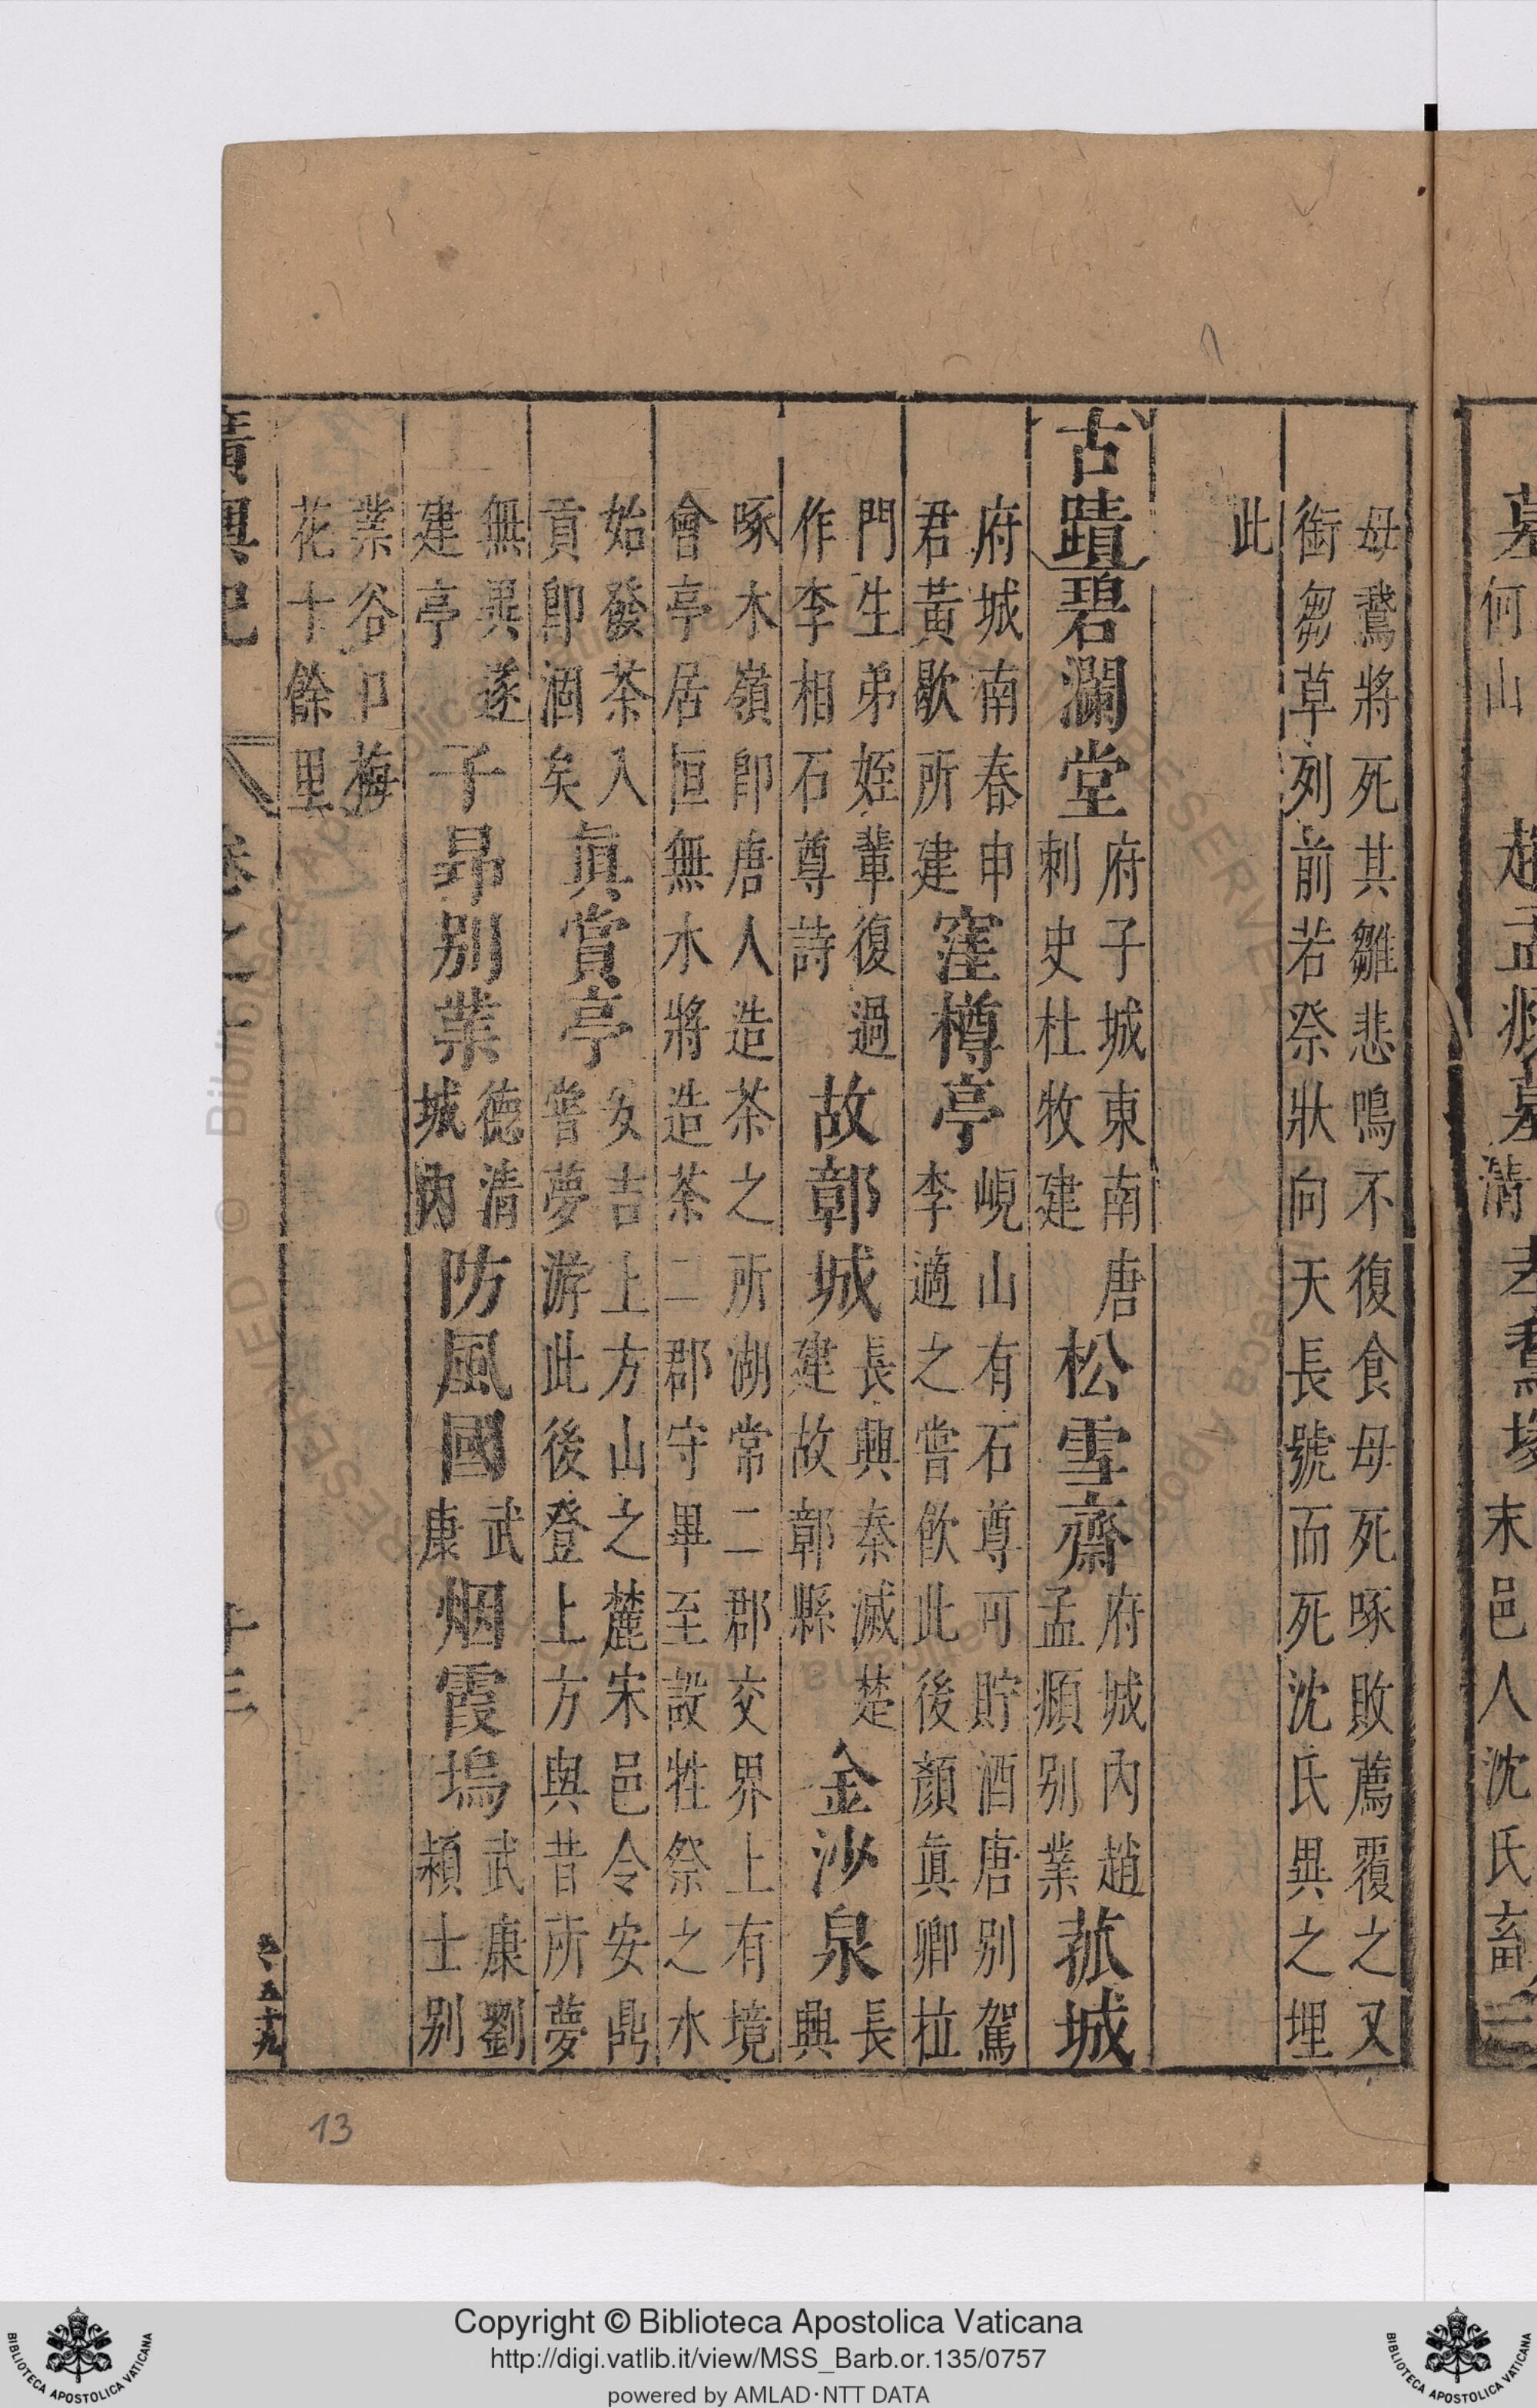 何山
清
末邑人沈氏畜
母鵞將死其雛悲鳴不復食母死啄敗薦覆之又
銜芻草列前若祭狀向天長號而死沈氏異之埋
此
古蹟碧瀾堂府子城東南唐刺史杜牧建松雪齋府城內趙孟頫别業菰城
府城南春申君黃歇所建窪樽亭峴山有石尊可貯酒唐别駕李適之嘗飲此後顏眞卿拉
門生弟姪輩復過作李相石尊詩故鄣城長興秦滅楚建故鄣縣金沙泉長興
啄木嶺即唐人造茶之所湖常二郡交界上有境會亭居恒無水將造茶二郡守畢至設牲祭之水
始發茶入貢即涸矣眞賞亭安吉上方山之麓宋邑令安鼎嘗夢游此後登上方與昔所夢
無異遂建亭子昻别業德清城內防風國武康烟霞塢武康劉頴士别
業谷口梅花十餘里
廣輿記 卷之十 十三
13
Copyright © Biblioteca Apostolica Vaticana
http://digi.vatlib.it/view/MSS_Barb.or.135/0757
powered by AMLAD·NTT DATA